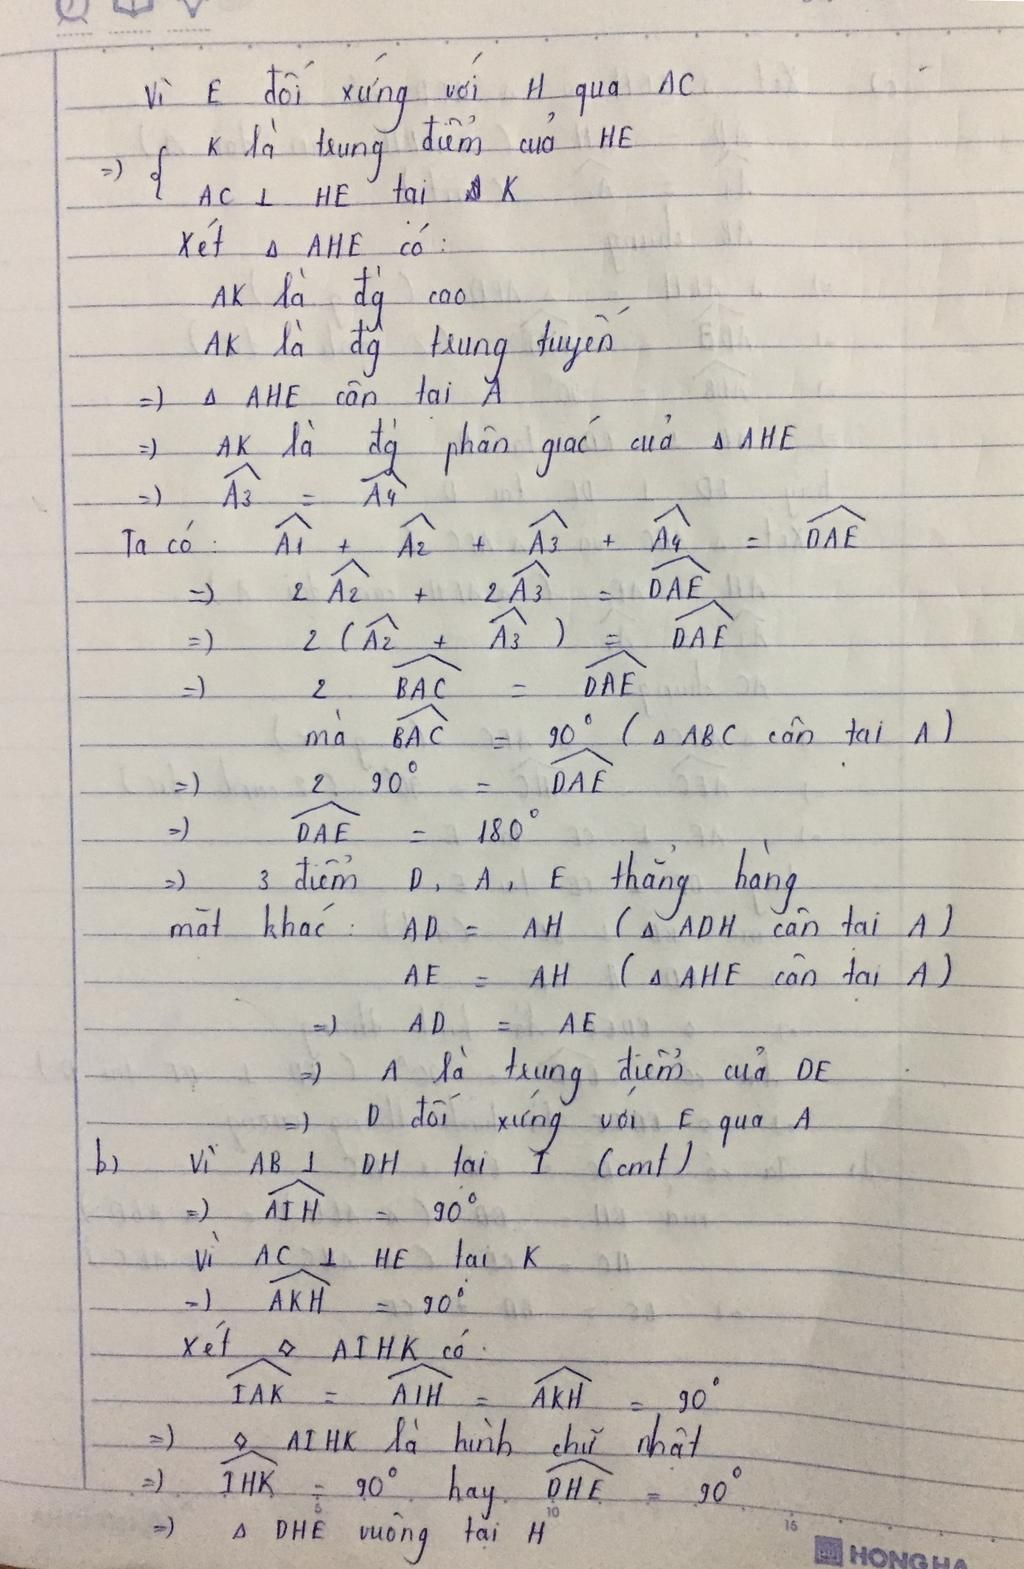 Vì E đối xứng với H qua AC
=> { K là trung điểm của HE
AC ⊥ HE tại K
Xét Δ AHE có:
AK là đg cao
AK là đg trung tuyến
=> Δ AHE cân tại A
=> AK là đg phân giác của Δ AHE
=> Â3 = Â4
Ta có: Â1 + Â2 + Â3 + Â4 = \widehat{DAE}
=> 2 Â2 + 2 Â3 = \widehat{DAE}
=> 2 (Â2 + Â3) = \widehat{DAE}
=> 2. \widehat{BAC} = \widehat{DAE}
mà \widehat{BAC} = 90° (Δ ABC cân tại A)
=> 2. 90° = \widehat{DAE}
=> \widehat{DAE} = 180°
=> 3 điểm D, A, E thẳng hàng
mặt khác: AD = AH (Δ ADH cân tại A)
AE = AH (Δ AHE cân tại A)
=> AD = AE
=> A là trung điểm của DE
=> D đối xứng với E qua A
b) Vì AB ⊥ DH tại I (cmt)
=> \widehat{AIH} = 90°
Vì AC ⊥ HE tại K
=> \widehat{AKH} = 90°
Xét ◇ AIHK có:
\widehat{IAK} = \widehat{AIH} = \widehat{AKH} = 90°
=> ◇ AIHK là hình chữ nhật
=> \widehat{IHK} = 90° hay \widehat{DHE} = 90°
=> Δ DHE vuông tại H
5 10 15
HONG HA